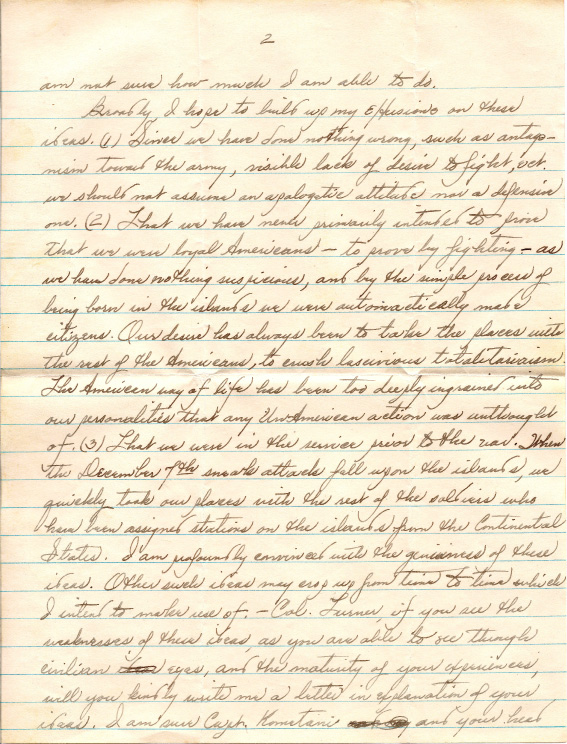 2
am not sure how much I am able to do.
Broadly, I hope to build up my effusions on these
ideas. (1) Since we have done nothing wrong, such as antago-
nism toward the army, visible lack of desire to fight, ect.
we should not assume an apologetic attitude nor a defensive
one. (2) That we have never primarily intended to prove
that we were loyal Americans — to prove by fighting — as
we have done nothing suspicious, and by the simple process of
being born in the islands we were automactically made
citizens. Our desire has always been to take the places with
the rest of the Americans, to crush lascivious totalitarianism.
The American way of life has been too deeply ingrained into
our personalities that any UnAmerican action was unthought
of. (3) That we were in the service prior to the war. When
the December 7th sneak attack fell upon the islands, we
quickly took our places with the rest of the soldiers who
have been assigned stations on the islands from the Continental
States. I am profoundly convinced with the of these
ideas. Other such ideas may crop up from time to time which
I intend to make use of. — Col. Turner, if you see the
weaknesses of these ideas, as you are able to see through
civilian eyes, and the maturity of your experiences,
will you kindly write me a letter in explanation of your
ideas. I am sure Capt. Kometani and your